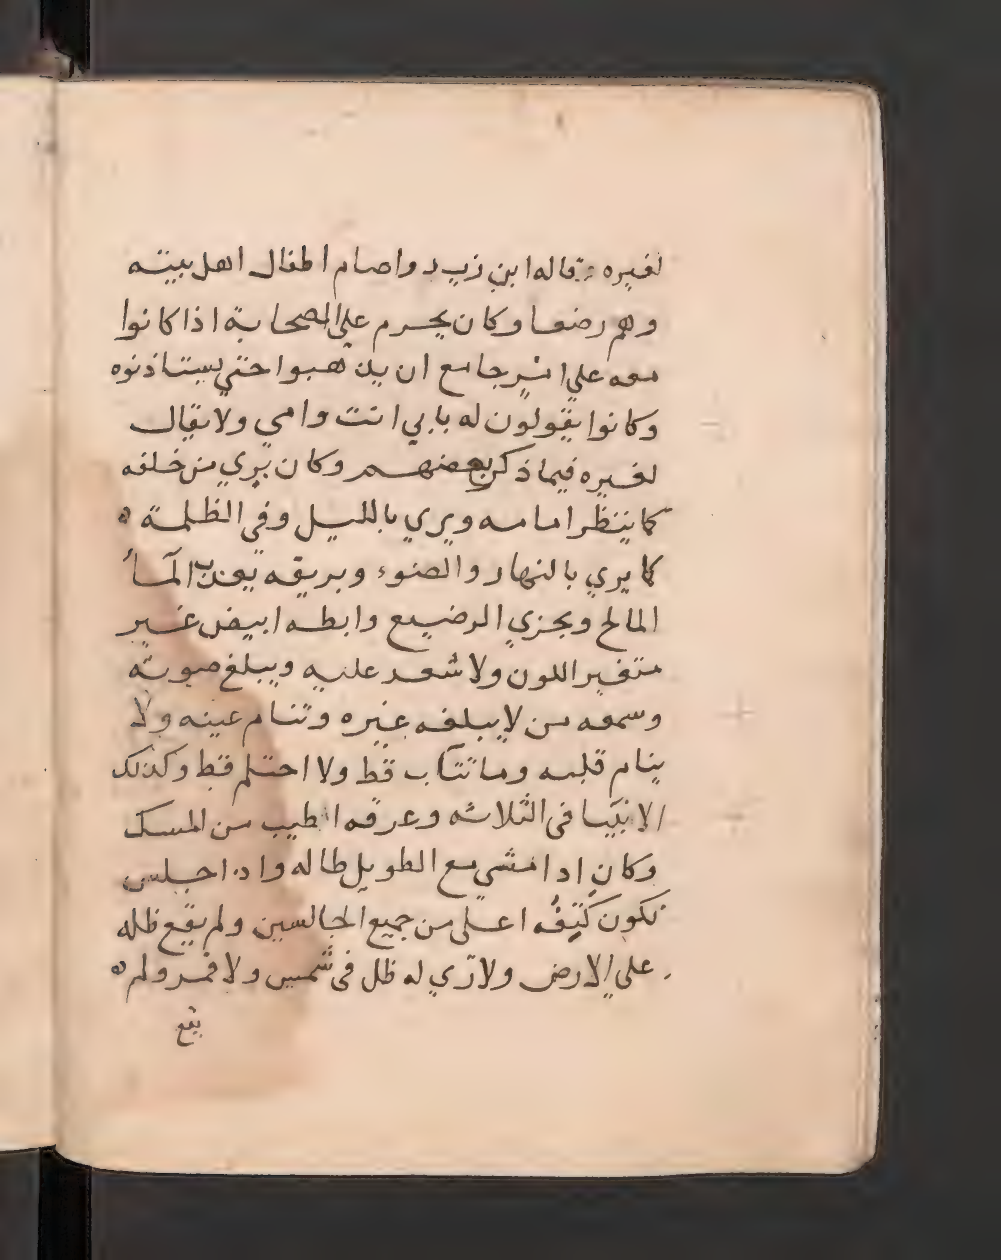 لغيره قاله ابن زيد واصام اطفال اهل بيته
وهم رضعا وكان يحرم علي الصحابة اذا كانوا
معه علي امر جامع ان يذهبوا حتي يستاذنوه
وكانوا يقولون له بابي انت وامي ولا يقال
لغيره فيما ذكر بعضهم وكان يري من خلفه
كما ينظر امامه ويري بالليل وفي الظلمة ه
كما يري بالنهار والضوء وبريقه يعذب المآ
المالح ويجزي الرضيع وابطه ابيض غير
متغير اللون ولا شعر عليه ويبلغ صوته
وسمعه من لا يبلغه غيره وتنام عينه ولا
ينام قلبه وما تثآب قط ولا احتلم قط وكذلك
الانبيا في الثلاثه وعرقه اطيب من المسك
وكان اذا مشي مع الطويل طاله واذا جلس
تكون كتفه اعلي من جميع الجالسين ولم يقع ظله
علي الارض ولا رّي له ظل في شمس ولا قمر ولم ه
يقع